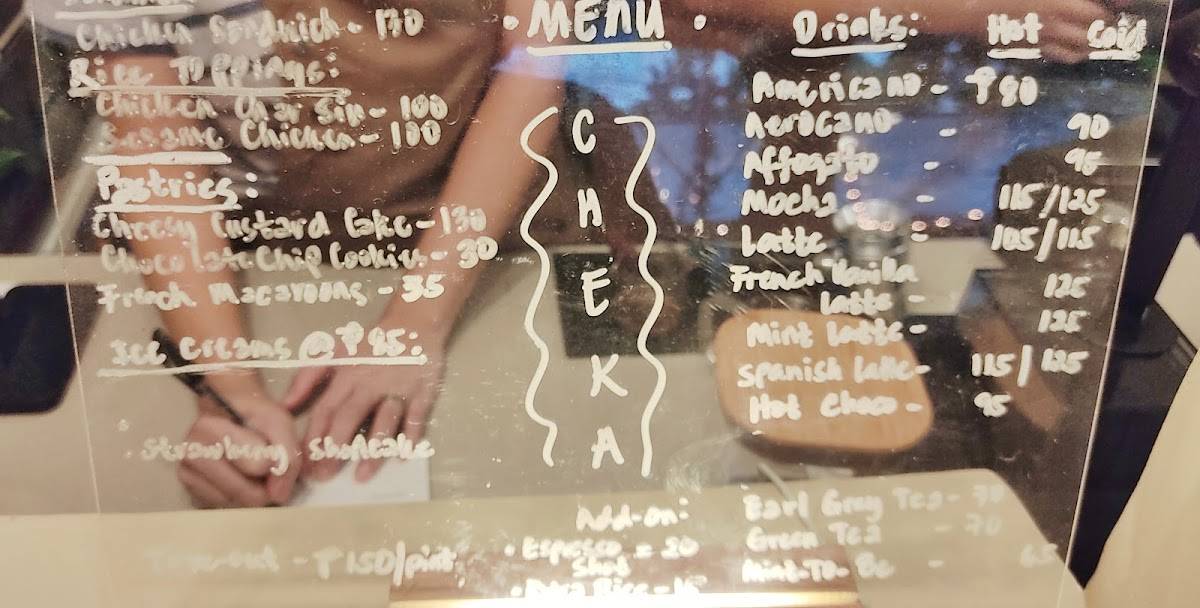 Chicken Sandwich - 170
Rice Toppings:
Chicken Char Siu - 100
Sesame Chicken - 100
Pastries:
Cheesy Custard Cake - 130
Chocolate Chip Cookies - 30
French Macaroons - 35
Ice Creams @ ₱85:
Strawberry Shortcake
Take-out - ₱150/pint
• MENU •
C
H
E
K
A
Add-on:
• Espresso = 20
Shot
• Extra Rice -
Drinks: Hot Cold
Americano - ₱80
Aerocano - 90
Affogato - 95
Mocha - 115/125
Latte - 105/115
French Vanilla
Latte - 125
Mint Latte - 125
Spanish Latte - 115/125
Hot Choco - 95
Earl Grey Tea - 70
Green Tea - 70
Mint-To-Be - 65